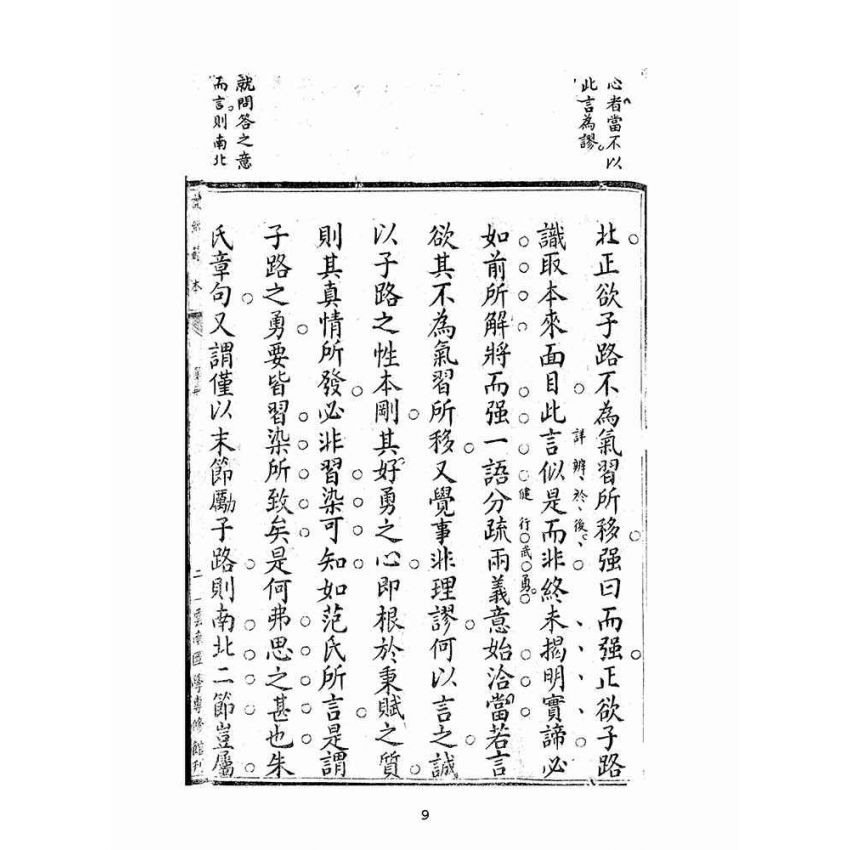 心者當不以
此言為謬
就問答之意
而言則南北
北正欲子路不為氣習所移强曰而强正欲子路
識取本來面目此言似是而非終未揭明實諦必
詳辨於後
如前所解將而强一語分疏兩義意始洽當若言
健行武勇
欲其不為氣習所移又覺事非理謬何以言之誠
以子路之性本剛其好勇之心即根於秉賦之質
則其真情所發必非習染可知如范氏所言是謂
子路之勇要皆習染所致矣是何弗思之甚也朱
氏章句又謂僅以末節勵子路則南北二節豈屬
二 雲南國學專修館刋
9